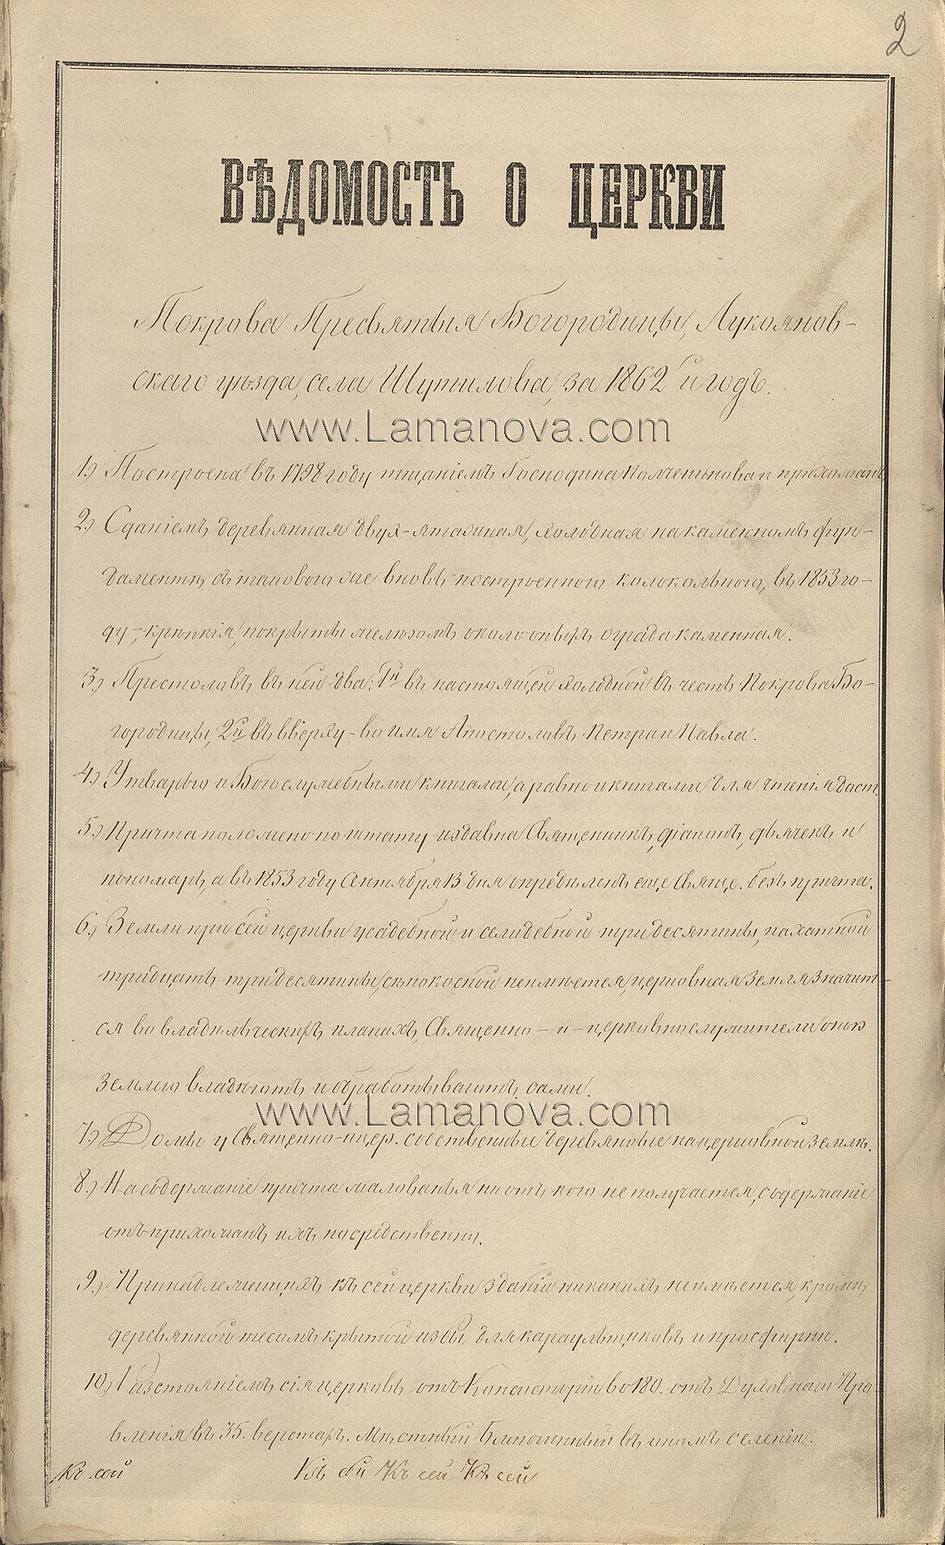 2
ВѢДОМОСТЬ О ЦЕРКВИ
Покрова Пресвятыя Богородицы, Лукоянов-
скаго уѣзда, села Шутилова, за 1862й годъ.
www.Lamanova.com
1,) Построена въ 1798 году тщаніемъ Господина и прихожанъ
2,) Зданіемъ деревянная двух-этажная, холодная на каменномъ фун-
даментѣ, съ таковою же вновь построенною колокольнею, въ 1853 го-
ду, крѣпкія, покрыты желѣзомъ, около онѣхъ ограда каменная.
3,) Престоловъ въ ней два: 1й въ настоящей холодной въ честь Покрова Бо-
городицы, 2й въ вверху - во имя Апостоловъ Петра и Павла.
4,) Утварью и Богослужебными книгами, а равно и книгами для чтенія дост.
5,) Причта положено по штату издавна Священникъ, діаконъ, дьячекъ и
пономарь, а въ 1853 году Сентября 13 дня опредѣленъ еще Свяще. безъ причта.
6,) Земли при сей церкви усадебной и селидебной три десятины, пахатной
тридцать три десятины, сѣнокосной не имѣется, церковная земля значит-
ся во владѣльческихъ планахъ, Священно - и - церковнослужители оною
землею владѣютъ и обработываютъ сами.
www.Lamanova.com
7,) Домы у Священно-и цер. собственные деревяновые на церковной землѣ.
8,) На содержаніе причта жалованья ни отъ кого не получается, содержаніе
отъ прихожанъ ихъ посредственно.
9,) Принадлежащихъ къ сей церкви зданій никакихъ не имѣется, кромѣ
деревянной тесомъ крытой избы для караульщиковъ и просфирни.
10,) Разстояніемъ сія церковь отъ Консисторіи во 180. отъ Духовнаго Пра-
вленія въ 35. верстахъ. Мѣстный Благочинный въ иномъ селеніи.
Къ сей Къ сей Къ сей Къ сей